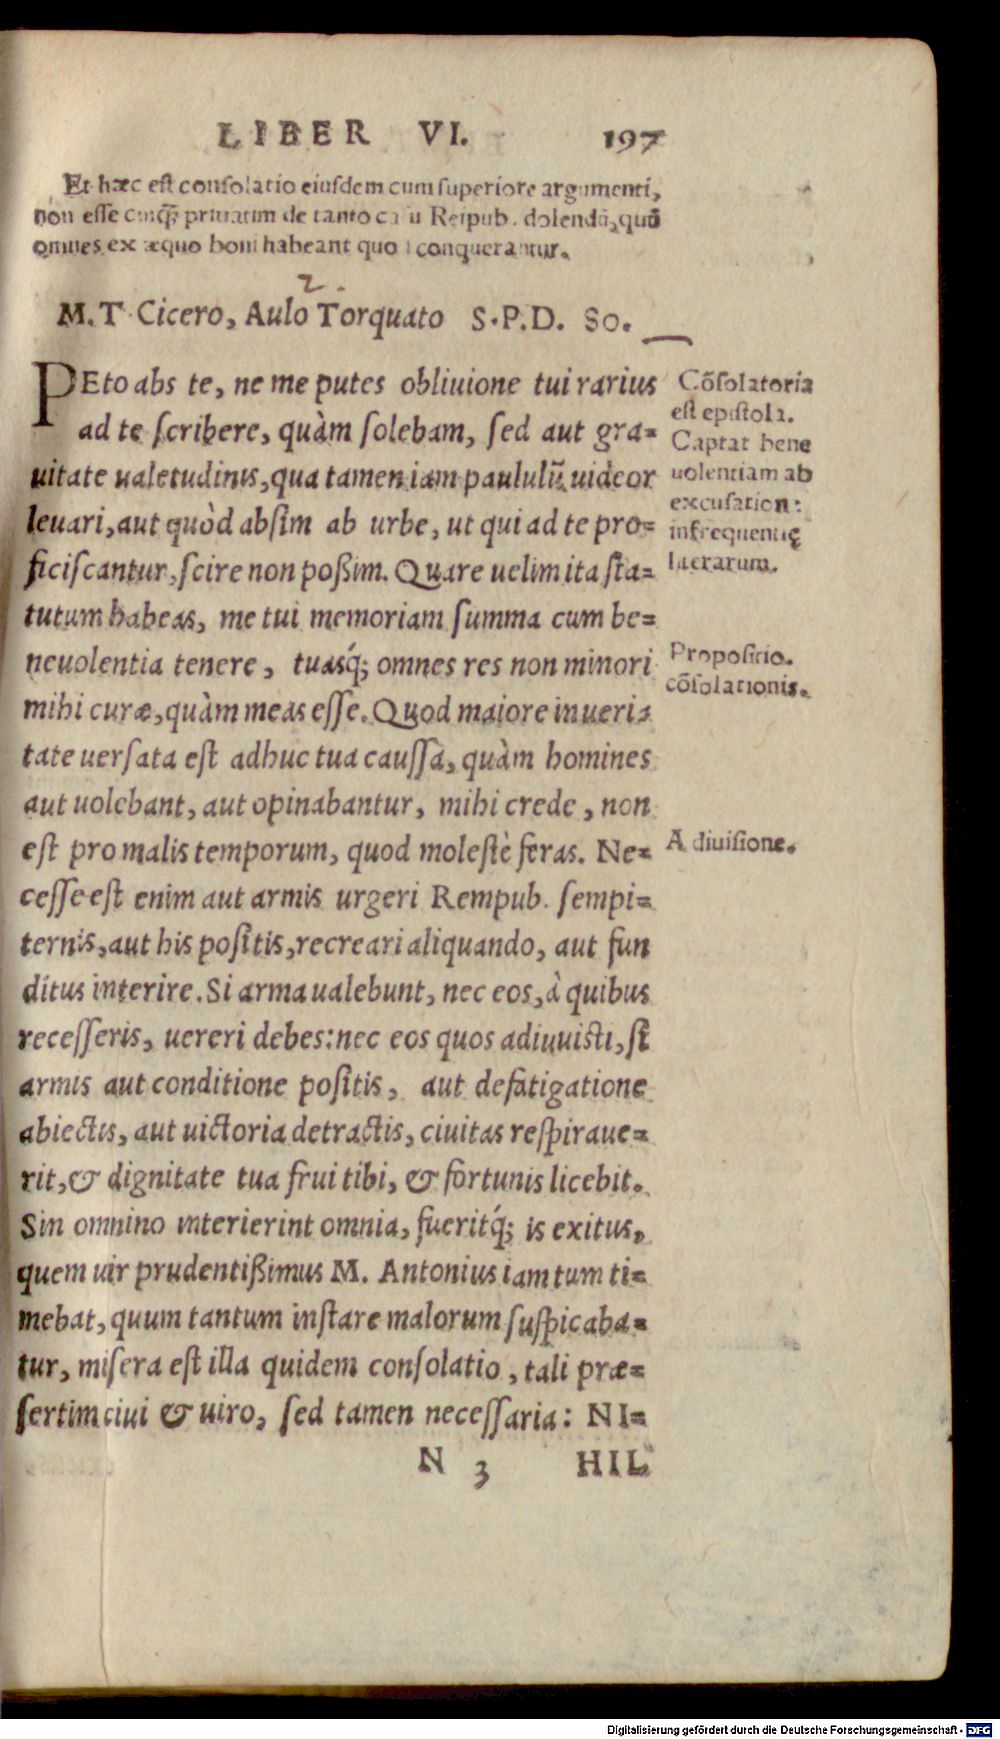 LIBER VI. 197
Et hæc est consolatio eiusdem cum superiore argumenti,
non esse cuiq; priuatim de tanto casu Reipub. dolendū, quū
omnes ex æquo boni habeant quod conquerantur.
2.
M. T. Cicero, Aulo Torquato S.P.D. So.
PEto abs te, ne me putes obliuione tui rarius
ad te scribere, quàm solebam, sed aut gra=
uitate ualetudinis, qua tamen iam paululū uideor
leuari, aut quòd absim ab urbe, ut qui ad te pro=
ficiscantur, scire non poßim. Quare uelim ita sta=
tutum habeas, me tui memoriam summa cum be=
neuolentia tenere, tuasq́; omnes res non minori
mihi curæ, quàm meas esse. Quod maiore in ueria
tate uersata est adhuc tua caussa, quàm homines
aut uolebant, aut opinabantur, mihi crede, non
est pro malis temporum, quod molestè feras. Ne=
cesse est enim aut armis urgeri Rempub. sempi=
ternis, aut his positis, recreari aliquando, aut fun
ditus interire. Si arma ualebunt, nec eos, à quibus
recesseris, uereri debes: nec eos quos adiuuisti, si
armis aut conditione positis, aut defatigatione
abiectis, aut uictoria detractis, ciuitas respiraue=
rit, & dignitate tua frui tibi, & fortunis licebit.
Sin omnino interierint omnia, fueritq́; is exitus,
quem uir prudentißimus M. Antonius iam tum ti=
mebat, quum tantum instare malorum suspicaba=
tur, misera est illa quidem consolatio, tali præ=
sertim ciui & uiro, sed tamen necessaria: NI=
N 3 HIL
Cōsolatoria
est epistola.
Captat bene
uolentiam ab
excusatione
infrequentię
literarum.
Propositio
cōsolationis.
A diuisione.
Digitalisierung gefördert durch die Deutsche Forschungsgemeinschaft - DFG